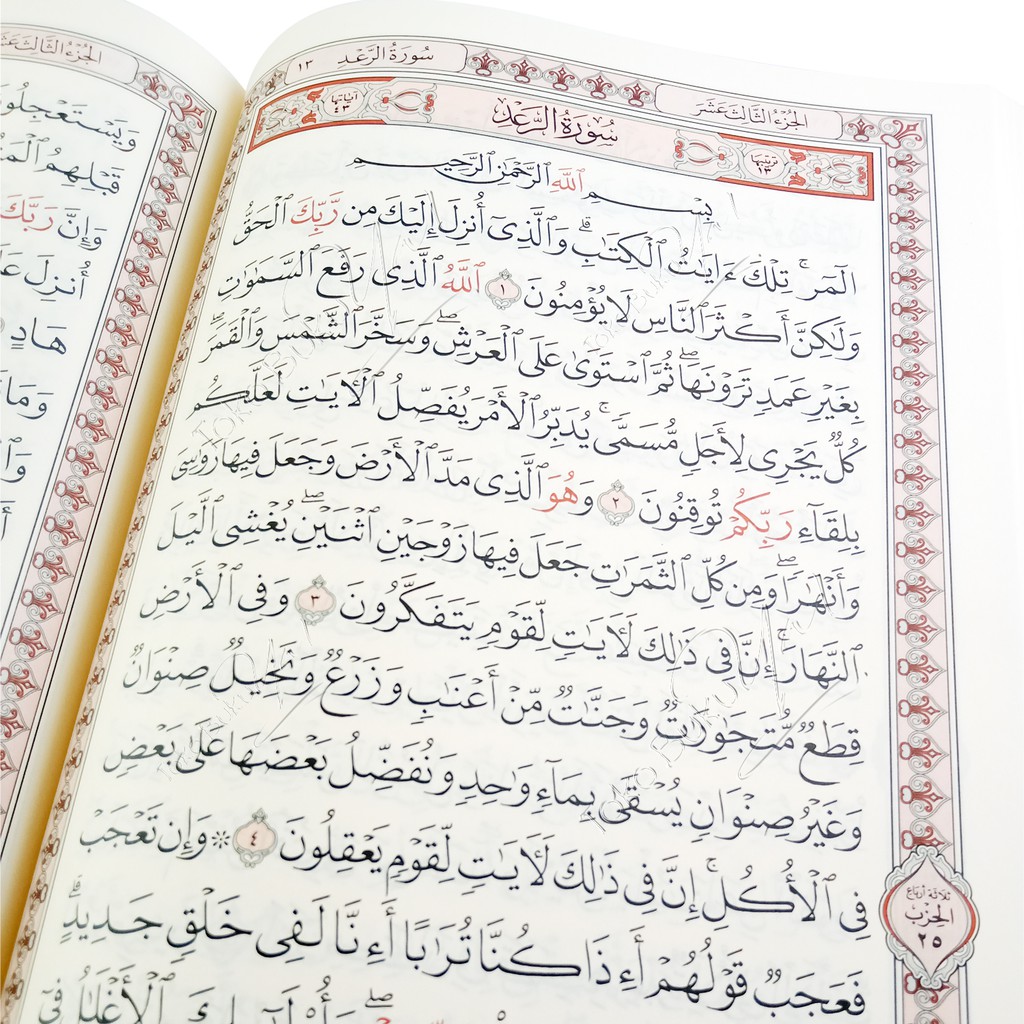 سُورَةُ الرَّعْدِ ١٣
الجُزْءُ الثَّالِثَ عَشَرَ
آيَاتُهَا ٤٣
سُورَةُ الرَّعْدِ
تَرْتِيبُهَا ١٣
بِسْمِ ٱللَّهِ ٱلرَّحْمَٰنِ ٱلرَّحِيمِ
الٓمٓر ۚ تِلْكَ ءَايَٰتُ ٱلْكِتَٰبِ ۗ وَٱلَّذِىٓ أُنزِلَ إِلَيْكَ مِن رَّبِّكَ ٱلْحَقُّ
وَلَٰكِنَّ أَكْثَرَ ٱلنَّاسِ لَا يُؤْمِنُونَ ١ ٱللَّهُ ٱلَّذِى رَفَعَ ٱلسَّمَٰوَٰتِ
بِغَيْرِ عَمَدٍ تَرَوْنَهَا ۖ ثُمَّ ٱسْتَوَىٰ عَلَى ٱلْعَرْشِ ۖ وَسَخَّرَ ٱلشَّمْسَ وَٱلْقَمَرَ ۖ
كُلٌّ يَجْرِى لِأَجَلٍ مُّسَمًّى ۚ يُدَبِّرُ ٱلْأَمْرَ يُفَصِّلُ ٱلْءَايَٰتِ لَعَلَّكُم
بِلِقَآءِ رَبِّكُمْ تُوقِنُونَ ٢ وَهُوَ ٱلَّذِى مَدَّ ٱلْأَرْضَ وَجَعَلَ فِيهَا رَوَٰسِىَ
وَأَنْهَٰرًا ۖ وَمِن كُلِّ ٱلثَّمَرَٰتِ جَعَلَ فِيهَا زَوْجَيْنِ ٱثْنَيْنِ ۖ يُغْشِى ٱلَّيْلَ
ٱلنَّهَارَ ۚ إِنَّ فِى ذَٰلِكَ لَءَايَٰتٍ لِّقَوْمٍ يَتَفَكَّرُونَ ٣ وَفِى ٱلْأَرْضِ
قِطَعٌ مُّتَجَٰوِرَٰتٌ وَجَنَّٰتٌ مِّنْ أَعْنَٰبٍ وَزَرْعٌ وَنَخِيلٌ صِنْوَانٌ
وَغَيْرُ صِنْوَانٍ يُسْقَىٰ بِمَآءٍ وَٰحِدٍ وَنُفَضِّلُ بَعْضَهَا عَلَىٰ بَعْضٍ
فِى ٱلْأُكُلِ ۚ إِنَّ فِى ذَٰلِكَ لَءَايَٰتٍ لِّقَوْمٍ يَعْقِلُونَ ٤ ۞ وَإِن تَعْجَبْ
فَعَجَبٌ قَوْلُهُمْ أَءِذَا كُنَّا تُرَٰبًا أَءِنَّا لَفِى خَلْقٍ جَدِيدٍ ۗ
ٱلْأَغْلَٰلُ فِىٓ
ثَلَاثَةُ أَرْبَاعِ
الحِزْبِ
٢٥
الجُزْءُ الثَّالِثَ عَشَرَ
وَيَسْتَعْجِلُونَ
قَبْلِهِمُ
وَإِنَّ رَبَّكَ
أُنزِلَ
هَادٍ